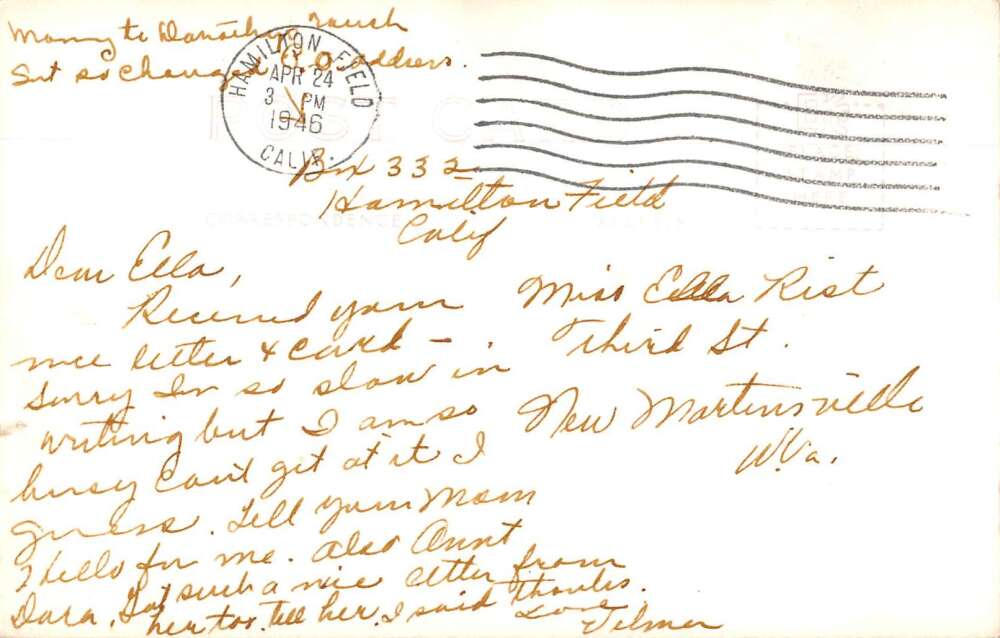 to
Sent so Changed address.
HAMILTON FIELD
APR 24
3 PM
1946
CALIF.
POST CARD
Box 332
Hamilton Field
Calif
CORRESPONDENCE
PLACE
STAMP
HERE
Dear Ella,
Received your
nice letter & card -.
Sorry Im so slow in
writing but I am so
busy Can't get at it I
guess. Tell your Mom
Hello for me. Also Aunt
Dara, Got such a nice letter from
her too. tell her I said thanks.
Love
Velma
Miss Ella Rist
Third St.
New Martinsville
W.Va.